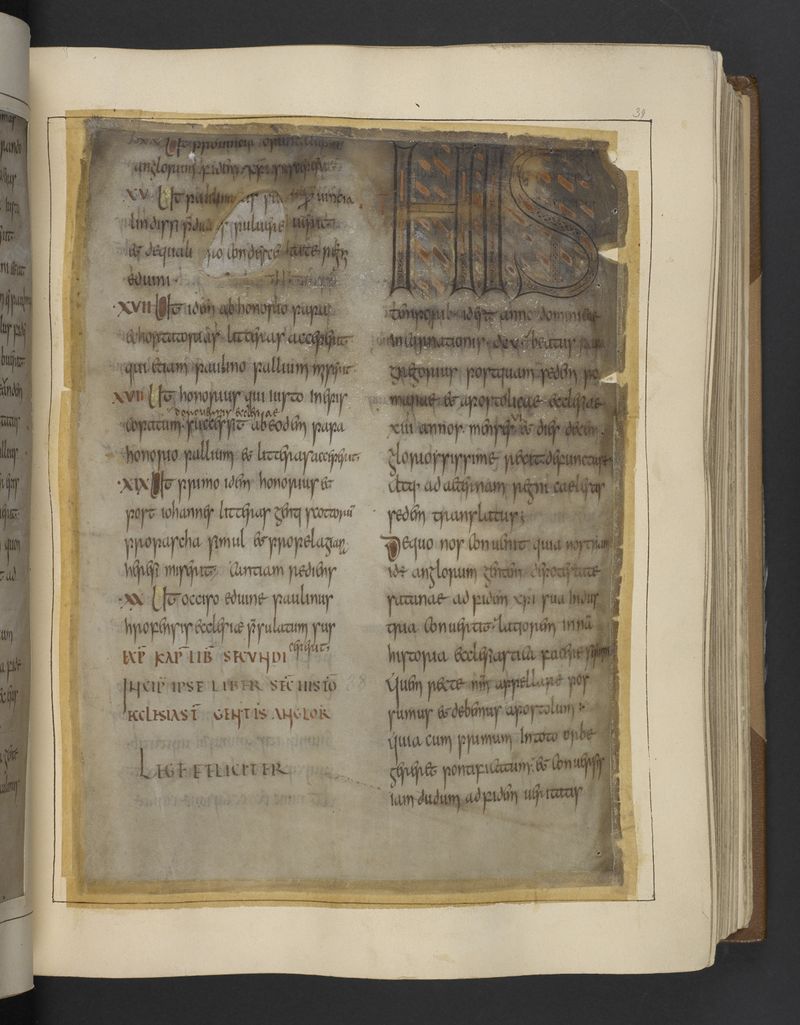 39
Ut prouincia
anglorum fidem xp̄i susceperit
XV Ut paulinus prouincia
lindissi
et de qualitate regni
eduini
·XVII· Ut idem ab honorio papa
exhortatorias litteras acceperit
qui etiam paulino pallium miserit
XVIII Ut honorius qui iusto in epis
doruuernis ecclesiae
copatum successit ab eodem papa
honorio pallium et litteras acceperit
·XIX· Ut primo idem honorius et
post iohannes litteras genti scottorum
pro pascha simul et pro pelagian
heresi miserit. Cantiam rediens
·XX· Ut occiso eduine paulinus
hrofensis ecclesiae praesulatum sus
ceperit.
EXP̄ KAP̄ LIB̄ SECUNDI
INCIP̄ IPSE LIBER SEC̄ HISTO
ECLESIAST̄ GENTIS ANGLOR
LEGE FELICITER
HIS
temporibus id est anno dominicae
incarnationis dcv beatus papa
gregorius postquam sedem ro
manae et apostolicae ecclesiae
xiii annos menses vi et dies decem
gloriosissime rexit defunctus
est atque ad aeternam regni caelestis
sedem translatus;
De quo nos conuenit quia nostram
id est anglorum gentem de potestate
satanae ad fidem xp̄i sua indus
tria conuertit. latiorem in nr̄a
historia ecclesiastica facere sermonem
Quem recte nr̄m appellare pos
sumus et debemus apostolum;
Quia cum primum in toto orbe
gereret pontificatum et conuersis
iam dudum ad fidem ueritatis